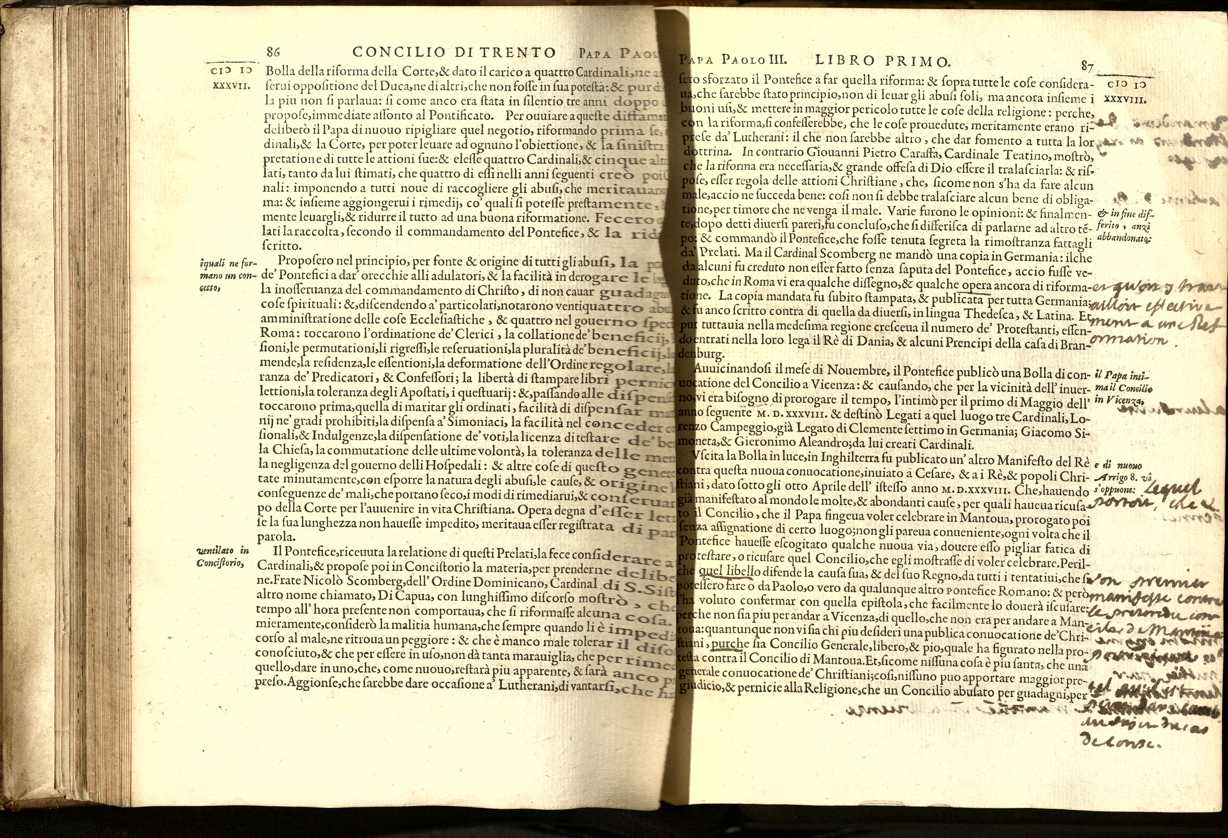 86 CONCILIO DI TRENTO PAPA PAOL
CIƆ IƆ
XXXVII.
Bolla della riforma della Corte,& dato il carico a quattro Cardinali,ne a
serui oppositione del Duca,ne di altri,che non fosse in sua potestà: & purd
la piu non si parlaua: si come anco era stata in silentio tre anni doppo
propose,immediate assonto al Pontificato. Per ouuiare a queste diffama
deliberò il Papa di nuouo ripigliare quel negotio, riformando prima se,
dinali,& la Corte, per poter leuare ad ognuno l'obiettione, & la sinistra
pretatione di tutte le attioni sue:& elesse quattro Cardinali,& cinque alt
lati, tanto da lui stimati, che quattro di essi nelli anni seguenti creò poi
nali: imponendo a tutti noue di raccogliere gli abusi, che meritauan
ma: & insieme aggiongerui i rimedij, co' quali si potesse prestamente,
mente leuargli,& ridurre il tutto ad una buona riformatione. Fecero
lati la raccolta, secondo il commandamento del Pontefice, & la rid
scritto.
iquali ne for-
mano un con-
cetto,
Proposero nel principio, per fonte & origine di tutti gli abusi, la
de' Pontefici a dar' orecchie alli adulatori, & la facilità in derogare le
la inosseruanza del commandamento di Christo, di non cauar guadag
cose spirituali: &,discendendo a' particolari,notarono ventiquattro abu
amministratione delle cose Ecclesiastiche, & quattro nel gouerno spec
Roma: toccarono l'ordinatione de' Clerici, la collatione de' beneficij,
sioni,le permutationi,li rigressi,le reseruationi,la pluralità de' beneficij,
mende,la residenza,le essentioni,la deformatione dell'Ordine regolare,
ranza de' Predicatori, & Confessori; la libertà di stampare libri pernic
lettioni,la toleranza degli Apostati, i questuarij: &,passando alle dispen
toccarono prima,quella di maritar gli ordinati, facilità di dispensar ma
nij ne' gradi prohibiti,la dispensa a' Simoniaci, la facilità nel conceder
sionali,& Indulgenze,la dispensatione de' voti,la licenza di testare de' be
la Chiesa, la commutatione delle ultime volontà, la toleranza delle me
la negligenza del gouerno delli Hospedali: & altre cose di questo gener
tate minutamente,con esporre la natura degli abusi,le cause, & origine
conseguenze de' mali,che portano seco,i modi di rimediarui,& conseruar
po della Corte per l'auuenire in vita Christiana. Opera degna d'esser lett
se la sua lunghezza non hauesse impedito, meritaua esser registrata di pa
parola.
ventilato in
Concistorio,
Il Pontefice,riceuuta la relatione di questi Prelati,la fece considerare a
Cardinali,& propose poi in Concistorio la materia,per prenderne delibe
ne.Frate Nicolò Scomberg,dell'Ordine Dominicano, Cardinal di S. Sist
altro nome chiamato, Di Capua, con lunghissimo discorso mostrò, ch
tempo all'hora presente non comportaua, che si riformasse alcuna cosa.
mieramente,considerò la malitia humana,che sempre quando li è impedi
corso al male,ne ritroua un peggiore: & che è manco male tolerar il diso
conosciuto,& che per essere in uso,non dà tanta marauiglia, che per rime
quello,dare in uno,che, come nuouo,restarà piu apparente, & sarà anco p
preso.Aggionse,che sarebbe dare occasione a' Lutherani,di vantarsi,che ha
PAPA PAOLO III. LIBRO PRIMO. 87
CIƆ IƆ
XXXVIII.
sero sforzato il Pontefice a far quella riforma: & sopra tutte le cose considera-
ua,che sarebbe stato principio,non di leuar gli abusi soli, ma ancora insieme i
buoni usi,& mettere in maggior pericolo tutte le cose della religione: perche,
con la riforma,si confesserebbe, che le cose prouedute, meritamente erano ri-
prese da' Lutherani: il che non sarebbe altro, che dar fomento a tutta la lor
dottrina. In contrario Giouanni Pietro Caraffa, Cardinale Teatino, mostrò,
che la riforma era necessaria,& grande offesa di Dio essere il tralasciarla: & ris-
pose, esser regola delle attioni Christiane, che, sicome non s'ha da fare alcun
male,accio ne succeda bene: così non si debbe tralasciare alcun bene di obliga-
tione,per timore che ne venga il male. Varie furono le opinioni: & finalmen-
te,dopo detti diuersi pareri,fu concluso,che si differisca di parlarne ad altro tē-
po: & commandò il Pontefice,che fosse tenuta segreta la rimostranza fattagli
da' Prelati. Ma il Cardinal Scomberg ne mandò una copia in Germania: ilche
da alcuni fu creduto non esser fatto senza saputa del Pontefice, accio fusse ve-
duto,che in Roma vi era qualche dissegno,& qualche opera ancora di riforma-
tione. La copia mandata fu subito stampata, & publicata per tutta Germania:
& fu anco scritto contra di quella da diuersi, in lingua Thedesca, & Latina. Et
pur tuttauia nella medesima regione cresceua il numero de' Protestanti, essen-
do entrati nella loro lega il Rè di Dania, & alcuni Prencipi della casa di Bran-
denburg.
& in fine dif-
ferito, anzi
abbandonato:
Auuicinandosi il mese di Nouembre, il Pontefice publicò una Bolla di con-
uocatione del Concilio a Vicenza: & causando, che per la vicinità dell'inuer-
no,vi era bisogno di prorogare il tempo, l'intimò per il primo di Maggio dell'
anno seguente M. D. XXXVIII. & destinò Legati a quel luogo tre Cardinali, Lo-
renzo Campeggio,già Legato di Clemente settimo in Germania; Giacomo Si-
moneta,& Gieronimo Aleandro;da lui creati Cardinali.
il Papa inti-
ma il Concilio
in Vicenza,
Vscita la Bolla in luce,in Inghilterra fu publicato un' altro Manifesto del Rè
contra questa nuoua conuocatione,inuiato a Cesare, & a i Rè,& popoli Chri-
stiani, dato sotto gli otto Aprile dell' istesso anno M. D.XXXVIII. Che,hauendo
già manifestato al mondo le molte,& abondanti cause, per quali haueua ricusa-
to il Concilio, che il Papa fingeua voler celebrare in Mantoua, prorogato poi
senza assignatione di certo luogo;non gli pareua conueniente,ogni volta che il
Pontefice hauesse escogitato qualche nuoua via, douere esso pigliar fatica di
protestare, o ricusare quel Concilio,che egli mostrasse di voler celebrare.Peril-
che quel libello difende la causa sua,& del suo Regno,da tutti i tentatiui,che si
potessero fare o da Paolo,o vero da qualunque altro Pontefice Romano: & però
ha voluto confermar con quella epistola, che facilmente lo douerà iscusare,
perche non sia piu per andar a Vicenza,di quello,che non era per andare a Man-
toua: quantunque non vi sia chi piu desideri una publica conuocatione de'Chri-
stiani, purche sia Concilio Generale,libero,& pio,quale ha figurato nella pro-
testa contra il Concilio di Mantoua.Et,sicome nissuna cosa è piu santa, che una
generale conuocatione de' Christiani;così,nissuno puo apportare maggior pre-
giudicio,& pernicie alla Religione,che un Concilio abusato per guadagni,per
e di nuouo
Arrigo 8. và
s'oppone:
lequel
son premier
manifeste contre
le pretendu con-
cile de Mantoue